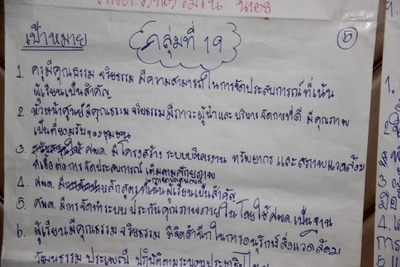 เป้าหมาย
กลุ่มที่ 19
1. ครูมีคุณธรรม จริยธรรม มีความสามารถในการจัดประสบการณ์ที่เน้น
ผู้เรียนเป็นสำคัญ
2. หัวหน้าศูนย์มีคุณธรรม จริยธรรมมีภาวะผู้นำและบริหารจัดการที่ดี มีคุณภาพ
เป็นที่ยอมรับของชุมชน
3. ศพด. มีโครงสร้าง ระบบบริหารงาน ทรัพยากร และสภาพแวดล้อม
ที่เอื้อต่อการจัดประสบการณ์ เต็มตามศักยภาพ
4. ศพด. หลักสูตรที่เน้นผู้เรียนเป็นสำคัญ
5. ศพด. มีการจัดทำระบบประกันคุณภาพภายใน โดยใช้ ศพด. เป็นฐาน
6. ผู้เรียนมีคุณธรรม จริยธรรม มีจิตสำนึกในการอนุรักษ์สิ่งแวดล้อม
วัฒนธรรม ประเพณี